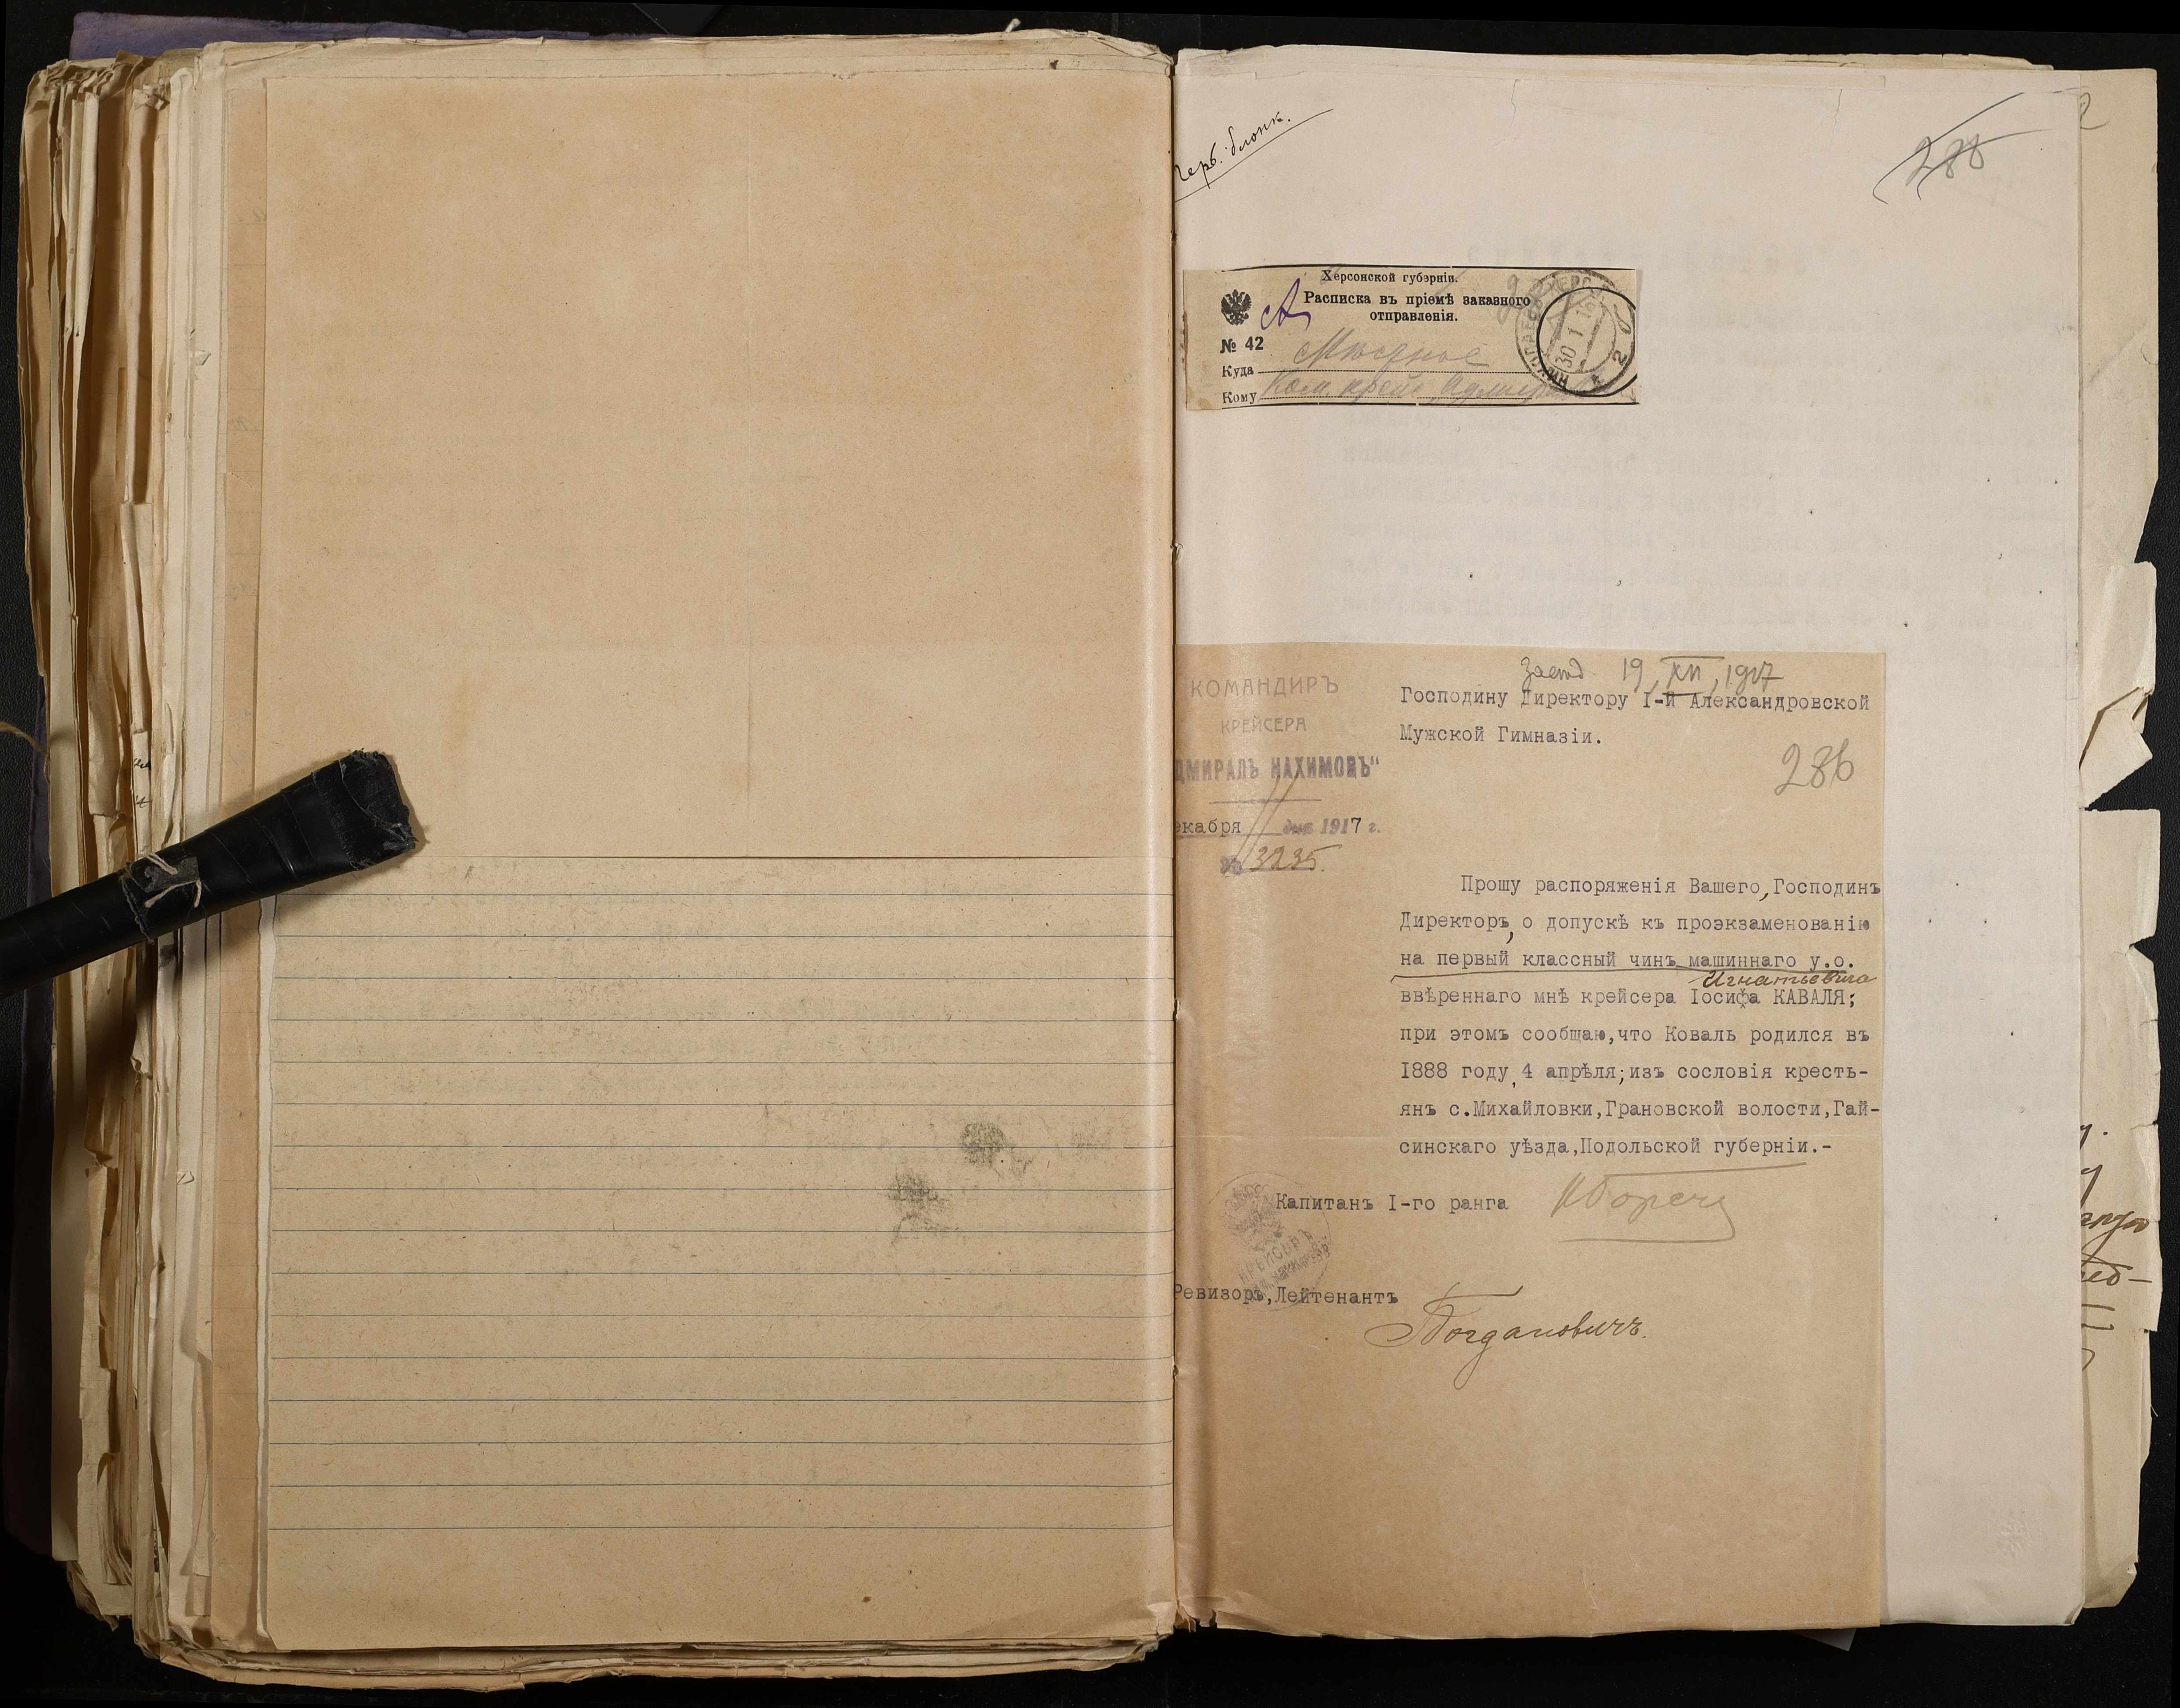 288
Херсонской губерніи.
Расписка въ пріемѣ заказного
отправленія.
№ 42
Куда Мѣстное
Кому Ком. крейс. Адмир
30 1 18
2
КОМАНДИРЪ
КРЕЙСЕРА
ДМИРАЛЪ НАХИМОВЪ"
екабря 11 дня 1917 г.
№ 3235.
19, XII, 1917
Господину Директору I-й Александровской
Мужской Гимназіи.
286
Прошу распоряженія Вашего, Господинъ
Директоръ, о допускѣ къ проэкзаменованію
на первый классный чинъ машиннаго у.о.
Игнатьевича
ввѣреннаго мнѣ крейсера Іосифа КАВАЛЯ;
при этомъ сообщаю, что Коваль родился въ
1888 году, 4 апрѣля; изъ сословія кресть-
янъ с.Михайловки, Грановской волости, Гай-
синскаго уѣзда, Подольской губерніи.-
Капитанъ I-го ранга
КРЕЙСЕРЪ
Ревизоръ, Лейтенантъ
Богдановичъ.